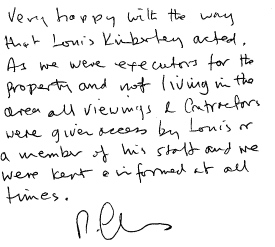 Very happy with the way
that Louis Kimberley acted.
As we were executors for the
property and not living in the
area all viewings & Contractors
were given access by Louis or
a member of his staff and we
were kept informed at all
times.